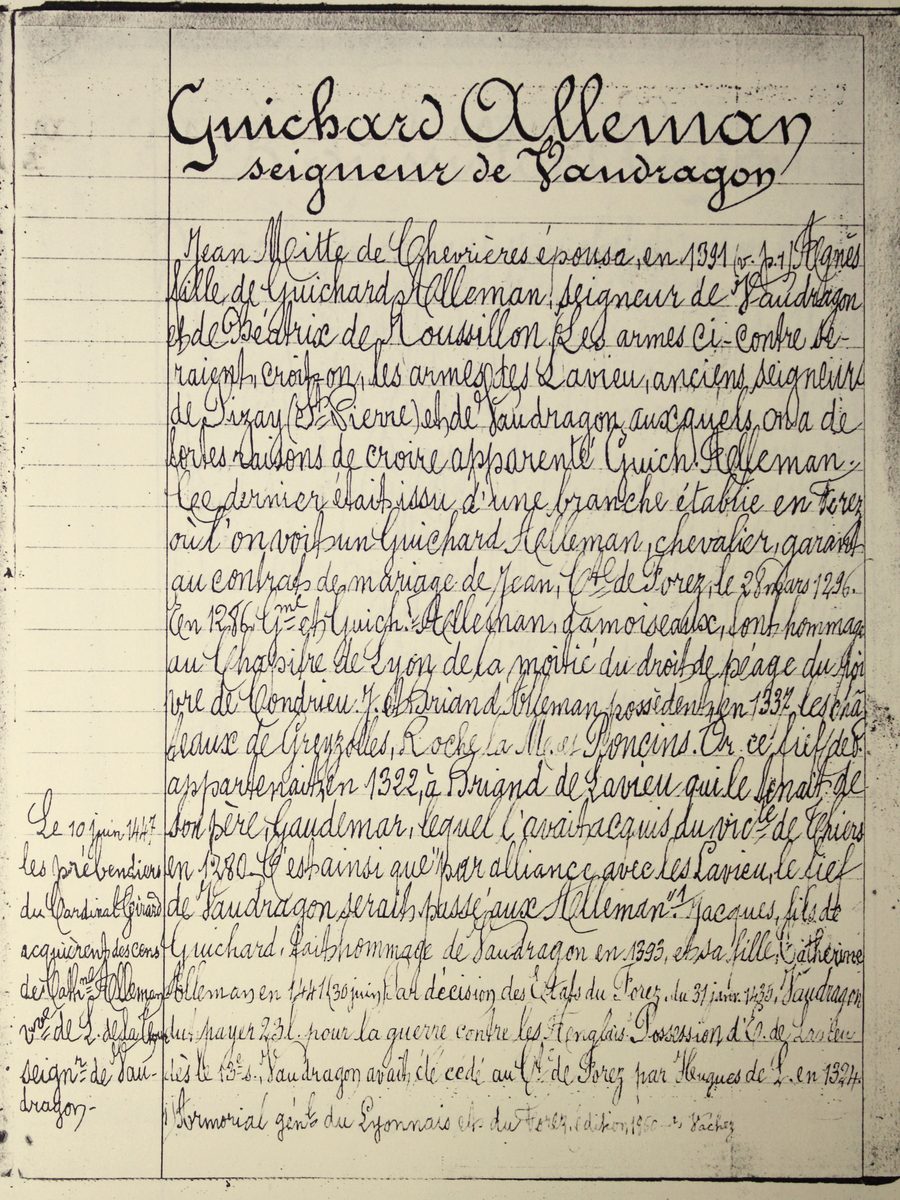 Guichard Alleman
seigneur de Vaudragon
Jean Mitte de Chevrières épousa, en 1391 (v. p. 1) Agnès
fille de Guichard Alleman, seigneur de Vaudragon
et de Béatrix de Roussillon. Les armes ci-contre se-
raient, croit-on, les armes des Lavieu, anciens seigneurs
de Pizay (St Pierre) et de Vaudragon, auxquels on a de
fortes raisons de croire apparenté Guich. Alleman.
Ce dernier était issu d'une branche établie en Forez
où l'on voit un Guichard Alleman, chevalier, garant
au contrat de mariage de Jean, Cte de Forez, le 28 mars 1296.
En 1286, Gme et Guich. Alleman, damoiseaux, font hommage
au Chapitre de Lyon de la moitié du droit de péage du poi
vre de Condrieu. J. et Briand Alleman possèdent, en 1337, les châ
teaux de Greyzolles, Roche la M. et Poncins. Or ce fief de
appartenait, en 1322, à Briand de Lavieu qui le tenait de
son père, Gaudemar, lequel l'avait acquis du victe de Thiers
en 1280. C'est ainsi que "par alliance avec les Lavieu, le fief
de Vaudragon serait passé aux Alleman".1 Jacques, fils de
Guichard, fait hommage de Vaudragon en 1393, et sa fille, Catherine
Alleman en 1441 (30 juin). Par décision des Etats du Forez, du 31 janv. 1430, Vaudragon
dut payer 23 l. pour la guerre contre les Anglais. Possession d'. de Lavieu
dès le 13e s., Vaudragon avait été cédé au Cte de Forez par Hugues de L. en 1324.
1) Armorial génl du Lyonnais et du Forez, édition 1960 Vachez
Le 10 juin 1447
les prébendiers
du Cardinal Girard
acquièrent des cens
de Cathne Alleman
vve de L. de la
seignr de Vau-
dragon-